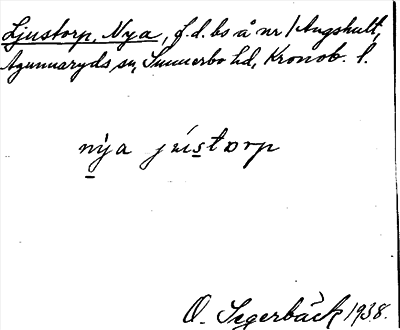 Ljustorp, Nya, f.d. bs å nr 1 Angshult,
Agunnaryds sn, Sunnerbo hd, Kronob. l.
nya jústorp
O. Segerbäck 1938.